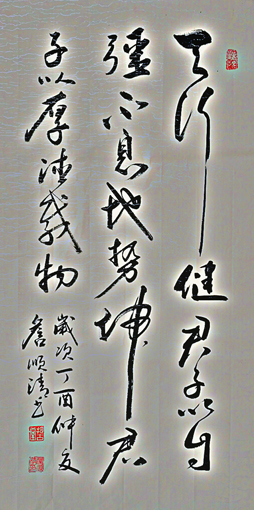 天行健君子以自
强不息地势坤君
子以厚德载物
岁次丁酉仲夏
詹顺清书